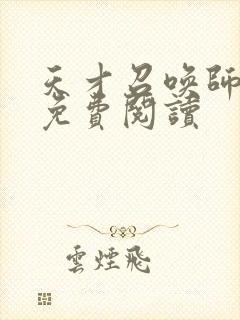 天才召喚師
免費閱讀
雲煙飛